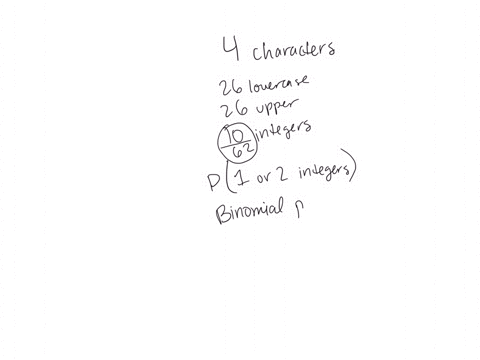 4 characters
26 lowercase
26 upper
10 integers
62
P(1 or 2 integers)
Binomial p